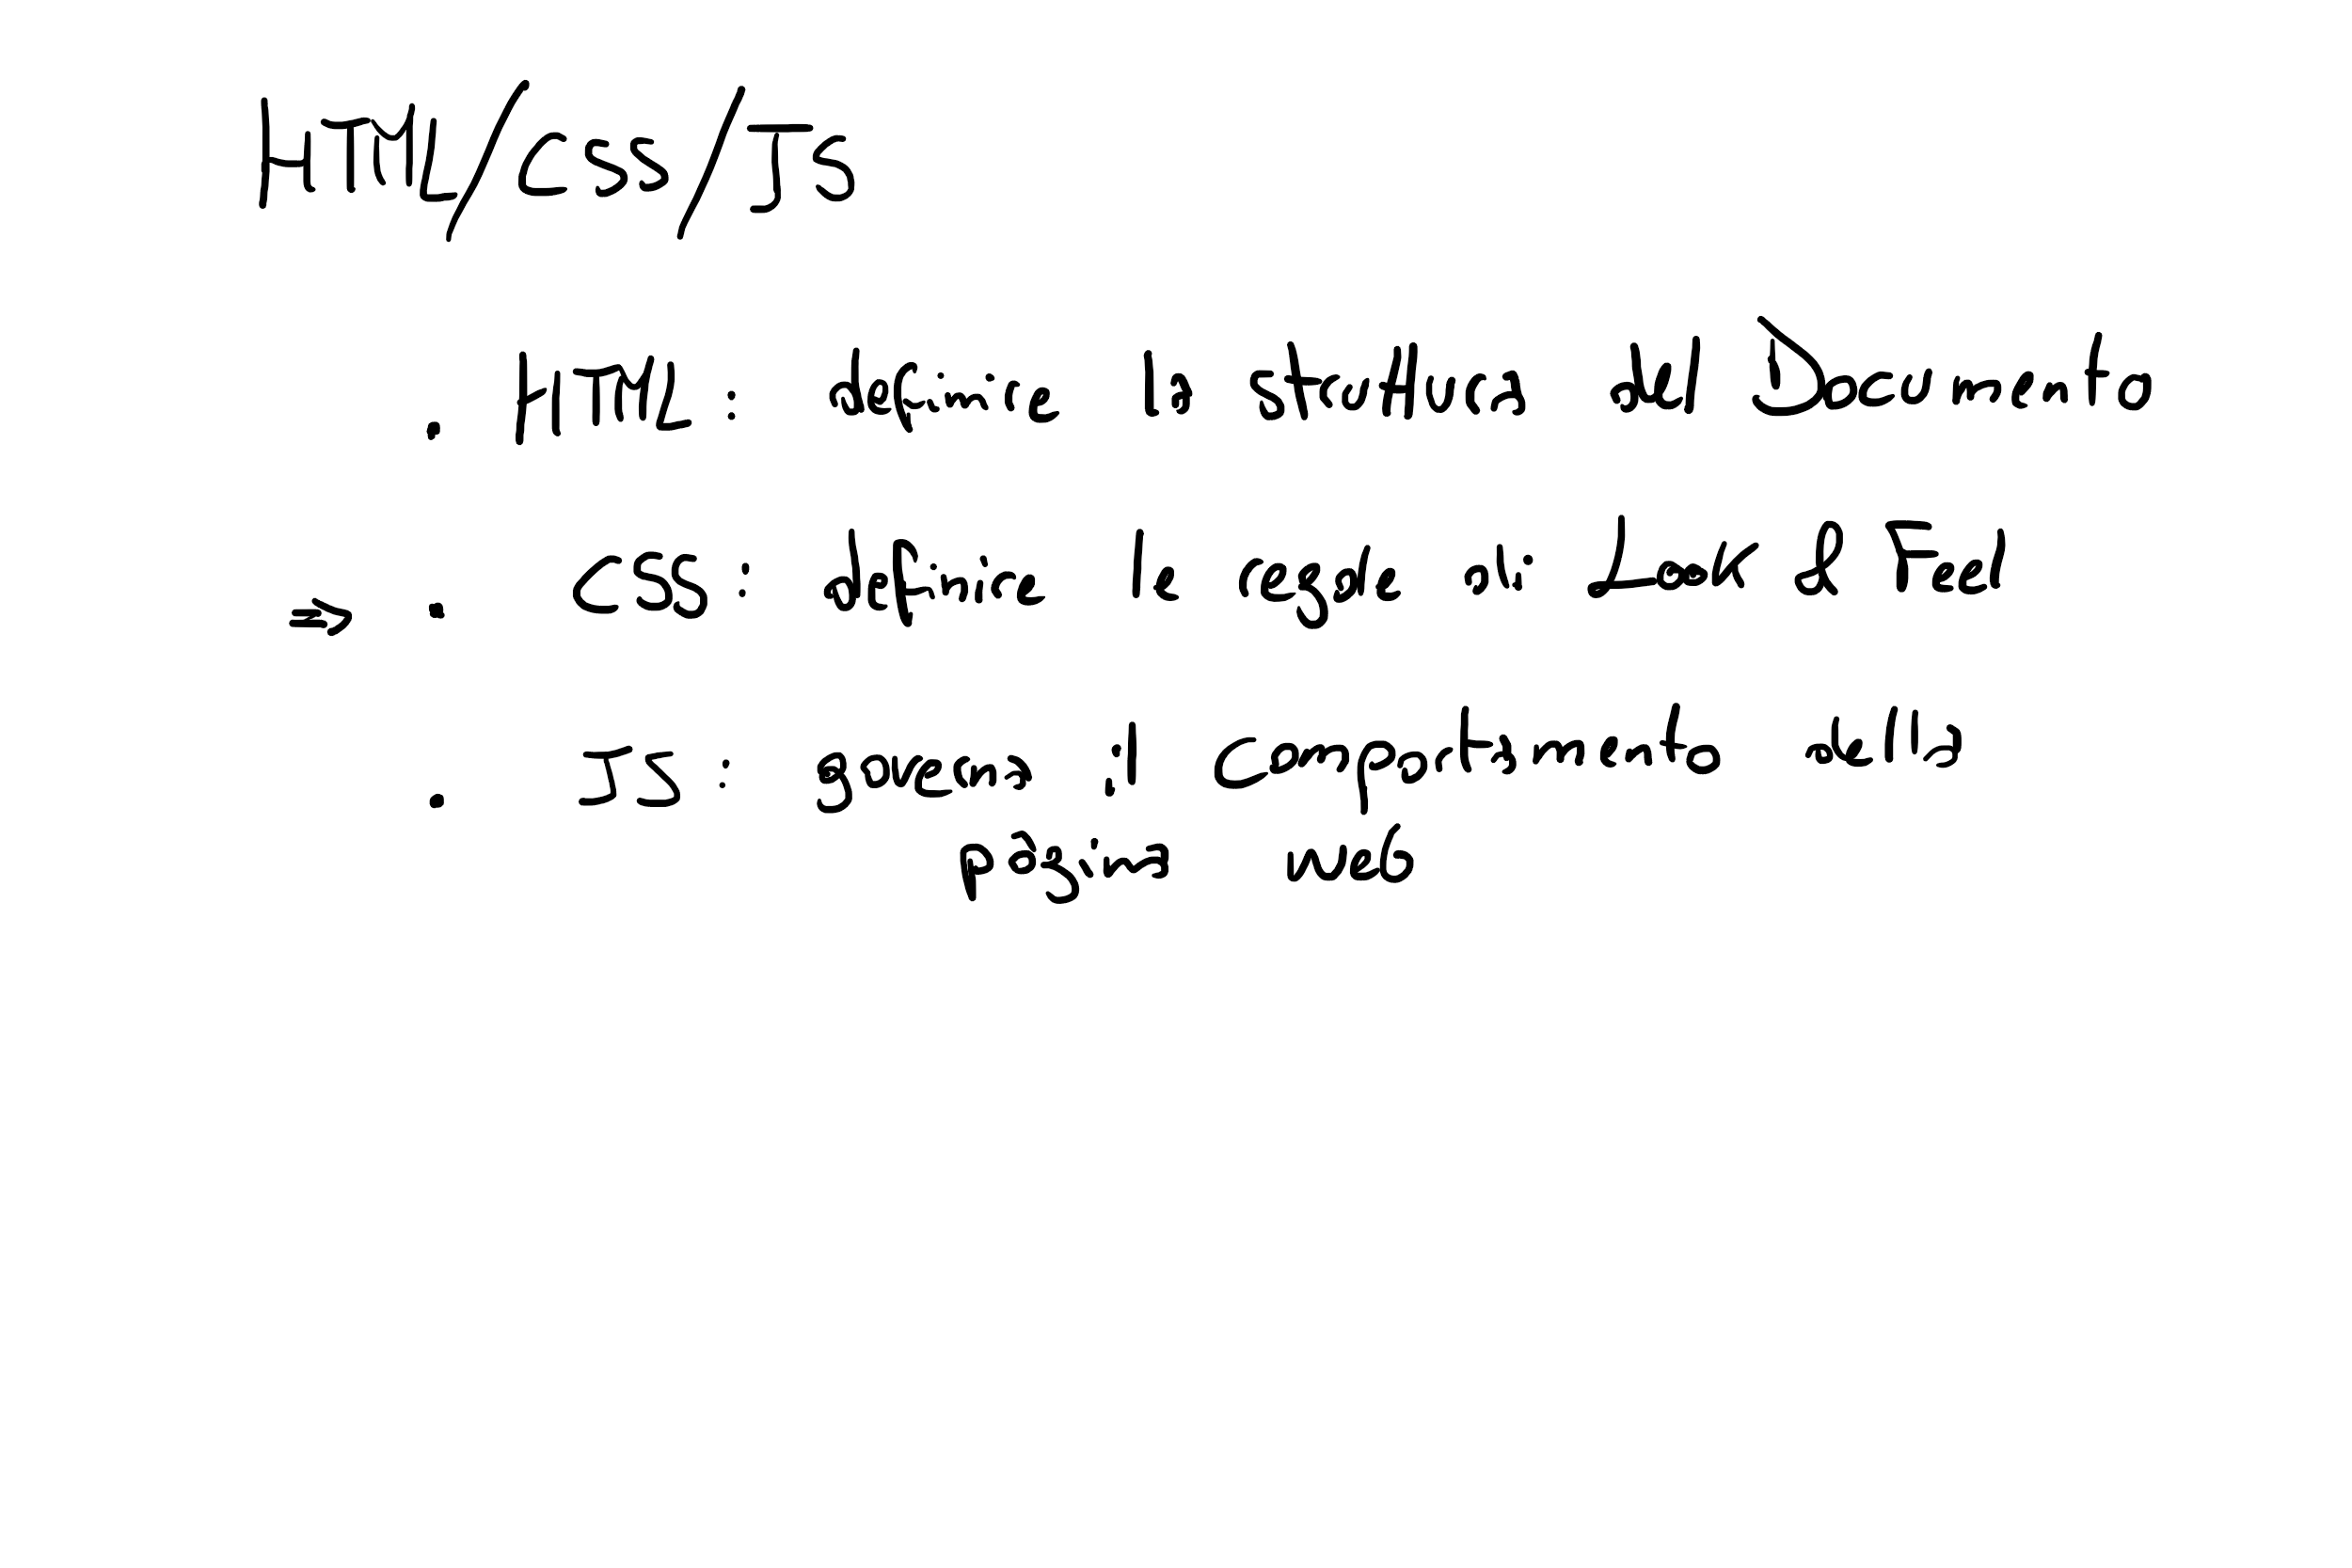 HTML/CSS/JS
. HTML: definire la struttura del Documento
⇒ . CSS: definire le regole di Look & Feel
. JS: governa il comportamento della
pagina web